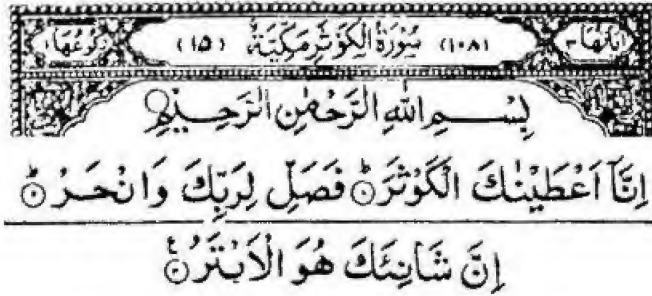 اٰيَاتُهَا ٣ (١٠٨) سُوْرَةُ الْكَوْثَرِ مَكِّيَّةٌ (١٥) رُكُوْعُهَا ١
بِسْمِ اللّٰهِ الرَّحْمٰنِ الرَّحِيْمِ
اِنَّآ اَعْطَيْنٰكَ الْكَوْثَرَ ؕ۝١ فَصَلِّ لِرَبِّكَ وَانْحَرْ ؕ۝٢
اِنَّ شَانِئَكَ هُوَ الْاَبْتَرُ ۝٣ ع